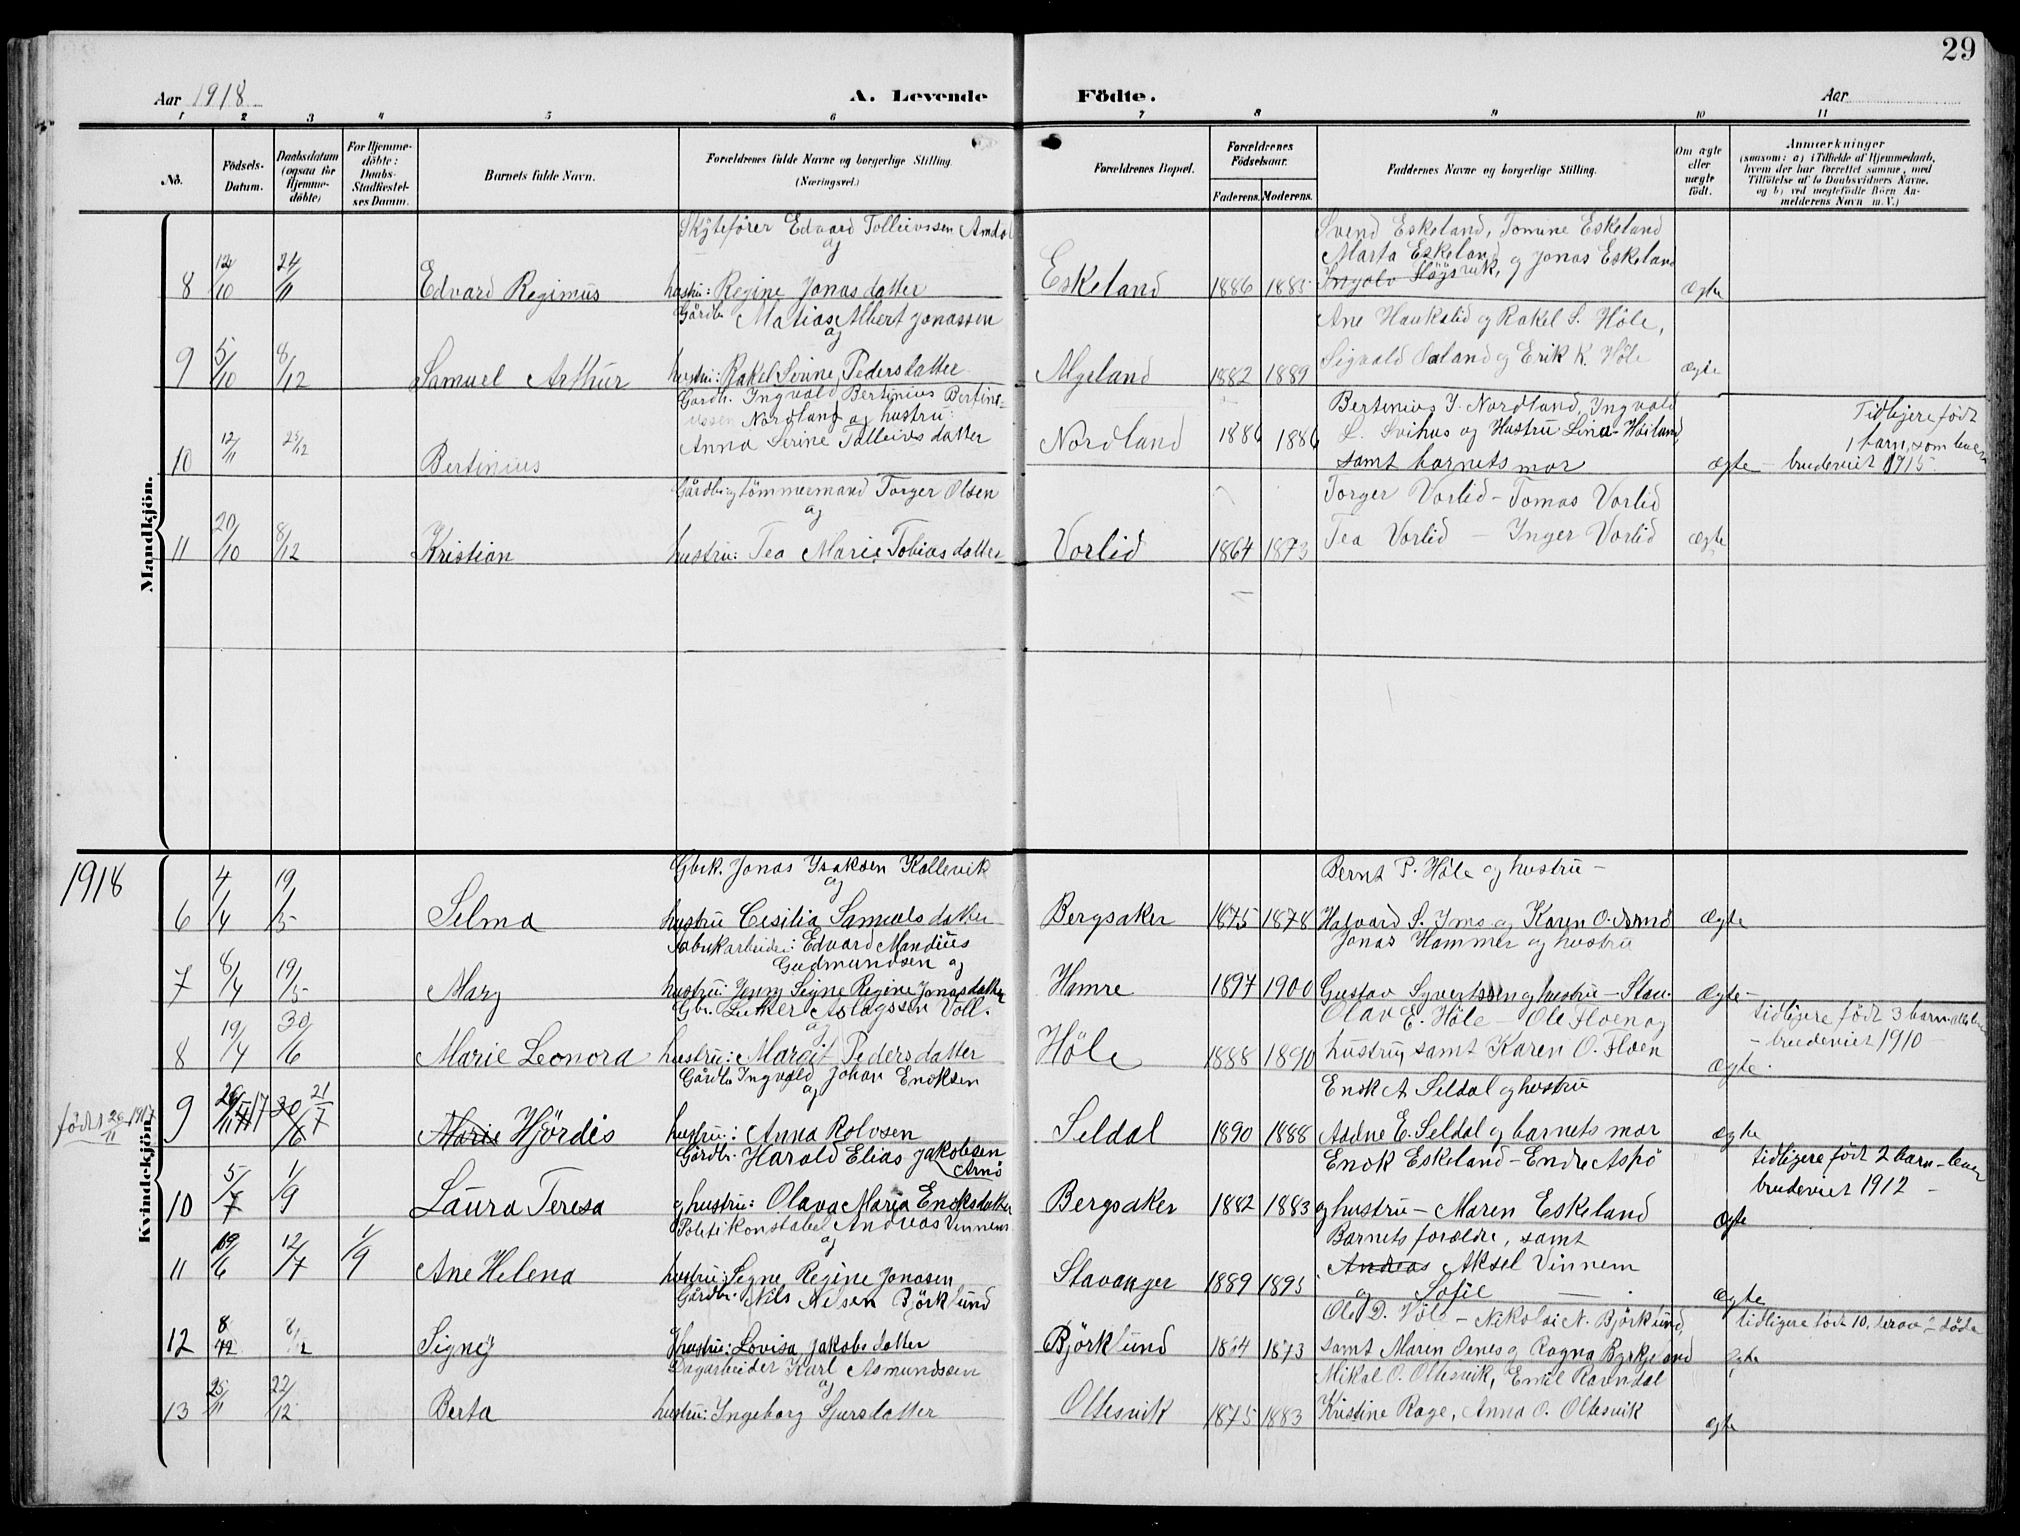 29
Aar 1918
A. Levende Födte.
Aar
1 2 3 4 5 6 7 8 9 10 11
No.
Födsels-Datum.
Daabsdatum (ogsaa for Hjemme-döbte)
For Hjemme-döbte: Daabs-Stadfæstel-ses Datum.
Barnets fulde Navn.
Forældrenes fulde Navne og borgerlige Stilling.
(Næringsvei.)
Forældrenes Bopæl.
Forældrenes Födselsaar.
Faderens. Moderens.
Faddernes Navne og borgerlige Stilling.
Om ægte eller uægte født.
Anmærkninger
(saasom: a) i Tilfælde af Hjemmedaab, hvem der har forrettet samme, med Tilföielse af to Daabsvidners Navne, og b) ved uægtefødte Börn An-melderens Navn m. V.)
Mandkjön.
Skytefører Edvard Tolleivssen Amdal
og
8 12/10 24/11 Edvard Regimus hustru: Regine Jonasdatter Eskeland 1886 1885 ægte
Svend Eskeland, Tomine Eskeland
Marta Eskeland og Jonas Eskeland
Gårdb. Matias Albert Jonassen
og
9 5/10 8/12 Samuel Arthur hustru: Rakel Serine Pedersdatter Algeland 1882 1889 ægte
Ane Haukalid og Rakel S. Höle,
Sigvald Öaland og Erik K. Höle
Gårdb. Ingvald Bertinius Bertine-
ussen Nordland og hustru:
Anna Serine Talleivsdatter
10 12/11 25/12 Bertinius Nordland 1886 1886 ægte
Bertinius I. Nordland, Ingvald
L. Svihus og Hustru Lina Höiland
samt barnets mor
Tidligere født
1 barn, som lever
bruderiet 1915
Gårdb. og tömmermand Torger Olsen
og
11 20/10 8/12 Kristian hustru: Tea Marie Tobiasdatter Vorlid 1864 1873 ægte
Torger Vorlid - Tomas Vorlid
Tea Vorlid - Inger Vorlid
1918
Kvindekjön.
Gbrk. Jonas Isaksen Kallevik
og
6 4/4 19/5 Selma hustru Cesilia Samuelsdatter Bergsaker 1875 1878 ægte
Bernt P. Höle og hustru -
Halvard S. Ims og Karen O. Arnö
Fabrikarbeider: Edvard Mandius
Gudmundsen og
7 8/4 19/5 Mary hustru: Jenny Signe Regine Jonasdatter Hamre 1897 1900 ægte -
Jonas Hammer og hustru
Gustav Syvertssen og hustru - Stav.
Gbr. Lutker Aslagssen Voll.
og
8 19/4 30/6 Marie Leonora hustru: Margit Pedersdatter Höle 1888 1890 ægte.
Olav E. Höle - Ole Floen og
hustru, samt Karen O. Floen
tidligere født 3 barn
- bruderiet 1910 -
Gårdb. Ingvald Johan Enoksen
og
født 26/11 1917
9 26/11 17 30/6 21/7 Marie Hjördis hustru: Anna Rolvsen Seldal 1890 1888 ægte
Enok A Seldal og hustru
Aadne E. Seldal og barnets mor
Gårdbr. Harald Elias Jakobsen
Arnö
10 5/7 1/9 Laura Teresa og hustru: Olava Maria Enoksdatter Bergsaker 1882 1883 ægte
Enok Eskeland - Endre Aspö
og hustru - Maren Eskeland
tidligere født 2 barn - lever
bruderiet 1912 -
Politikonstabel Andreas Vinnem
og
11 19/6 12/7 1/9 Ane Helena hustru: Signe Regine Jonasen Stavanger 1889 1895 ægte
Barnets forældre, samt
Andreas Aksel Vinnem
og Sofie —
Gårdbr. Nils Nilsen Björklund
12 8/12 8/12 Signy hustru: Lovisa Jakobsdatter Björklund 1864 1873 ægte
Ole D. Völe - Nikolai N. Björklund,
samt Maren Oenes og Ragna Byrkjeland
tidligere født 10, derav 2 døde
Dagarbeider Karl Asmundssen
og
13 25/11 22/12 Berta hustru: Ingeborg Sjursdatter Oltesvik 1875 1883 ægte
Mikal O. Oltesvik, Emil Ravndal
Kristine Rage, Anna O. Oltesvik